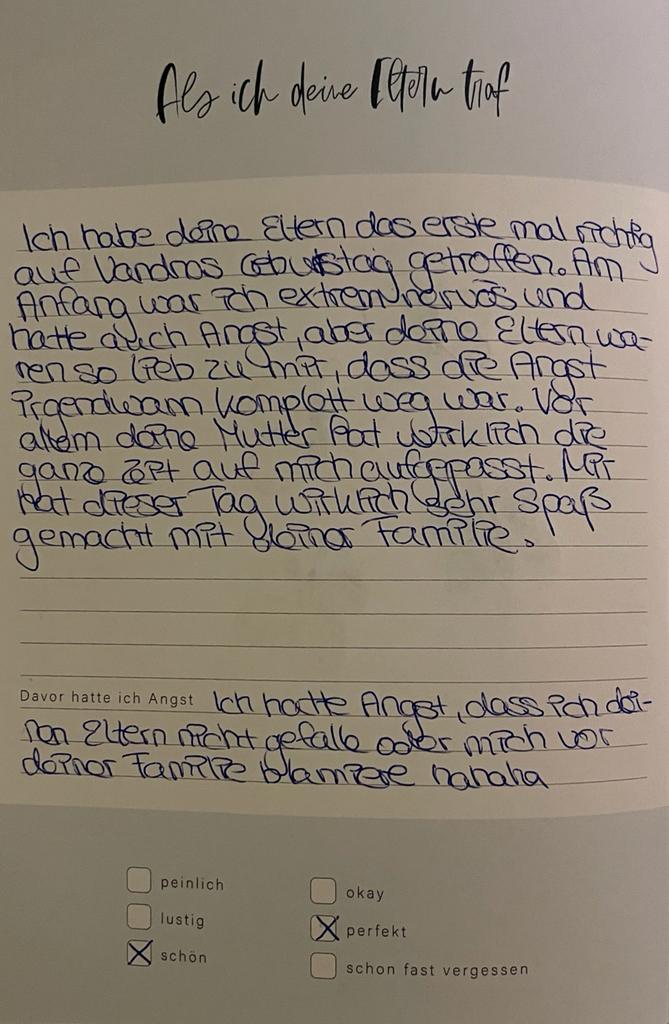 Als ich deine Eltern traf
Ich habe deine Eltern das erste mal richtig
auf Vandros Geburtstag getroffen. Am
Anfang war ich extrem nervös und
hatte auch Angst, aber deine Eltern wa-
ren so lieb zu mir, dass die Angst
irgendwann komplett weg war. Vor
allem deine Mutter hat wirklich die
ganze Zeit auf mich aufgepasst. Mir
hat dieser Tag wirklich sehr Spaß
gemacht mit deiner Familie.
Davor hatte ich Angst Ich hatte Angst, dass ich dei-
nen Eltern nicht gefalle oder mich vor
deiner Familie blamiere hahaha
peinlich
lustig
schön
okay
perfekt
schon fast vergessen